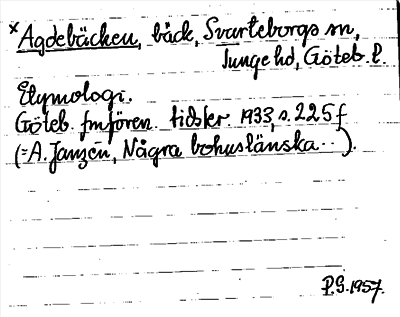 ×Agdebäcken, bäck, Svarteborgs sn,
Tunge hd, Göteb. l.
Etymologi.
Göteb. fmfören. tidskr. 1933, s. 225 f
(= A. Janzén, Några bohuslänska ...).
P.G. 1957.